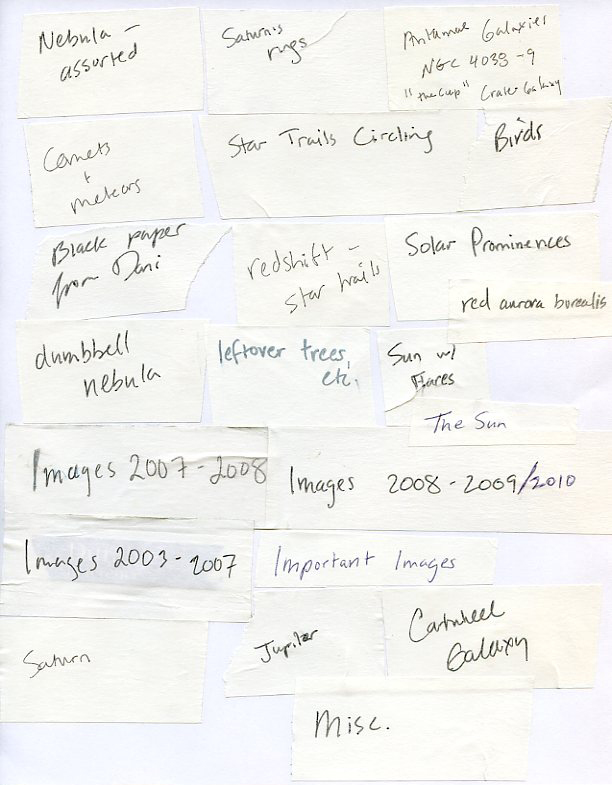 Nebula -
assorted
Saturn's
rings
Antennae Galaxies
NGC 4038-9
"the cup" Crater Galaxy
Comets
+
meteors
Star Trails Circling
Birds
Black paper
from Dani
redshift -
star trails
Solar Prominences
red aurora borealis
dumbbell
nebula
leftover trees,
etc.
Sun w/
Flares
The Sun
Images 2007-2008
Images 2008-2009/2010
Images 2003-2007
Important Images
Saturn
Jupiter
Cartwheel
Galaxy
Misc.